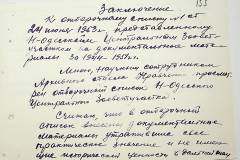 155
Заключение
К отборочному списку № 1 от
24 июня 1963 г. представленному
Н-Одесским Центральным Заовет-
участком на документальные мате-
риалы за 1944-1957 г.
Мною, научным сотрудником
Архивного отдела просмот-
рен отборочный список Н-Одесского
Центрального Зооветучастка.
Считаю, что в отборочный
список внесены документальные
материалы утратившие свое
практическое значение и не имею-
щие исторической ценности